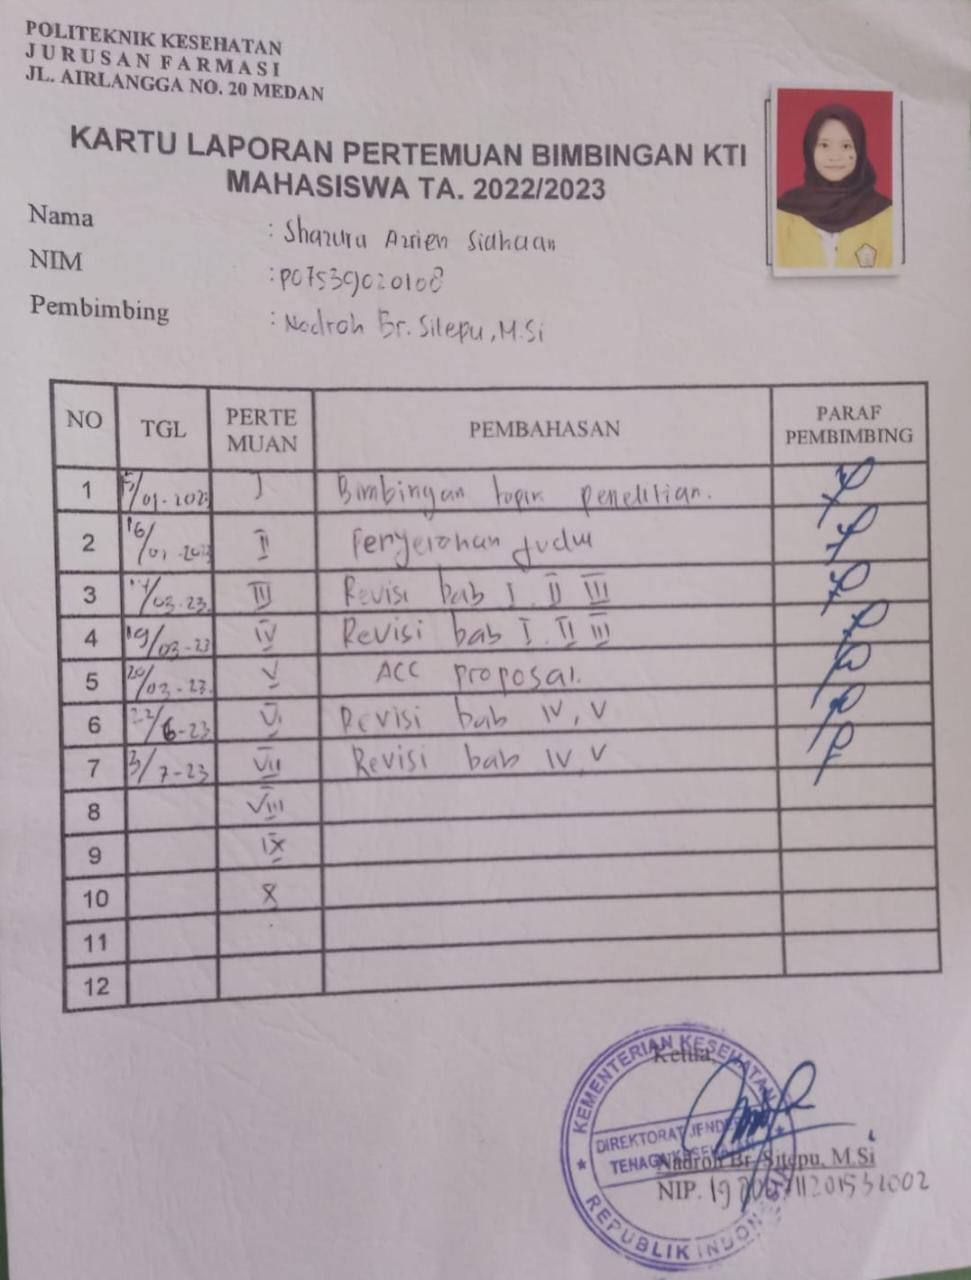 POLITEKNIK KESEHATAN
JURUSAN FARMASI
JL. AIRLANGGA NO. 20 MEDAN
KARTU LAPORAN PERTEMUAN BIMBINGAN KTI
MAHASISWA TA. 2022/2023
Nama : Shazura Azrien Siahaan
NIM : P07539020108
Pembimbing : Nadroh Br. Sitepu, M.Si
NO TGL PERTE MUAN PEMBAHASAN PARAF PEMBIMBING
1 5/01-2023 I Bimbingan topik penelitian.
2 16/01-2023 II Penyerahan judul
3 /03-23. III Revisi bab I. II III
4 19/03-23 IV Revisi bab I. II III
5 20/03-23. V ACC proposal.
6 22/6-23 VI Revisi bab IV, V
7 3/7-23 VII Revisi bab IV, V
8 VIII
9 IX
10 X
11
12
Ketua,
KEMENTERIAN KESEHATAN
DIREKTORAT JENDE
TENAGA KESEHATAN
REPUBLIK INDONESIA
Nadroh Br. Sitepu, M.Si
NIP.